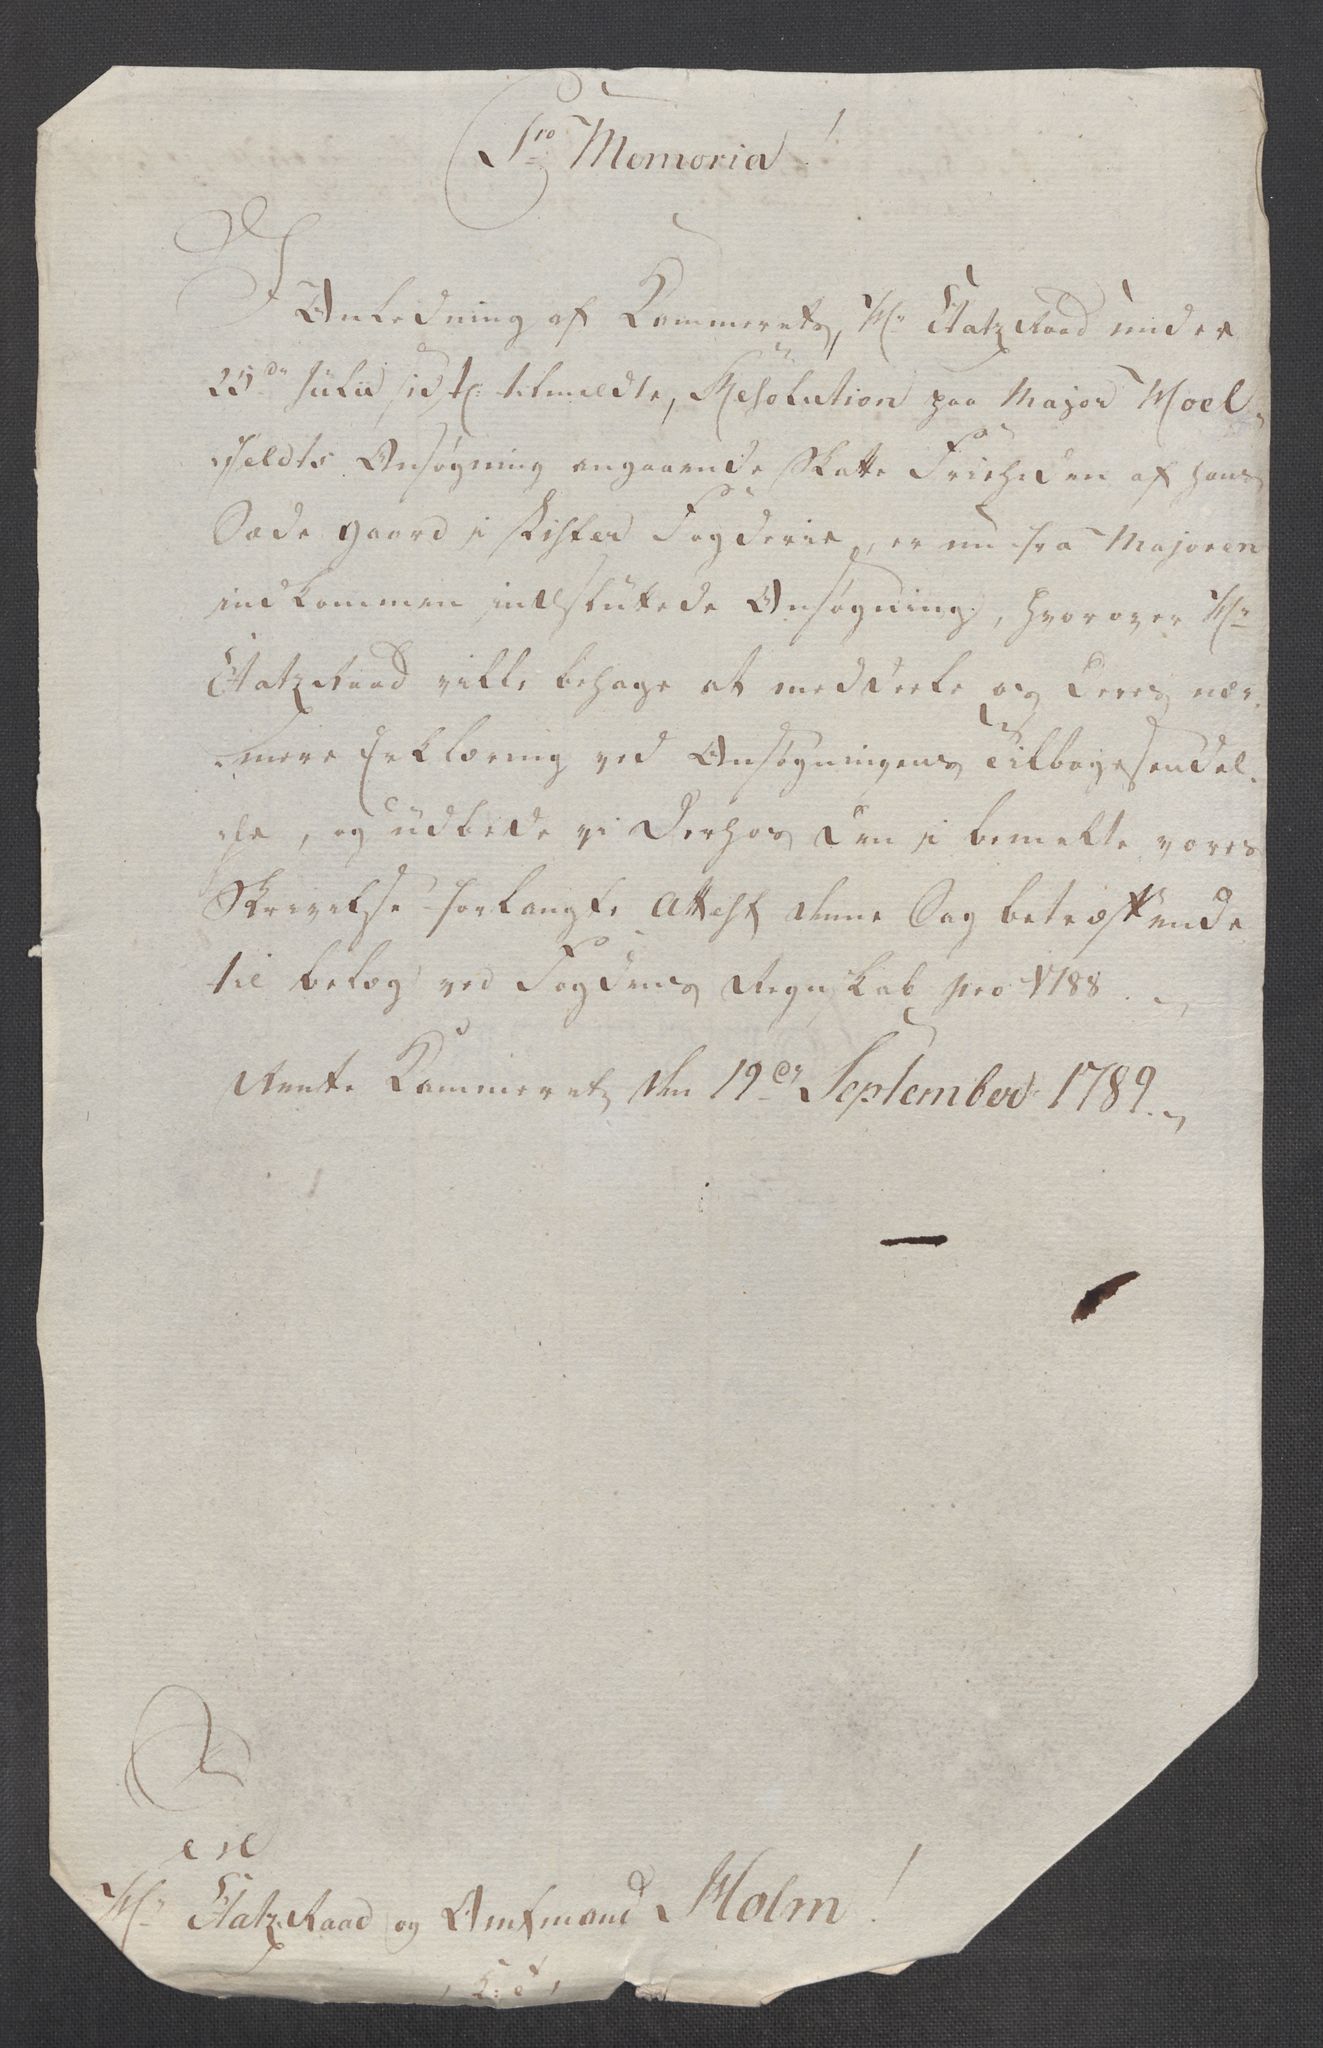 Pro Memoria!
I
Anledning af Kammerets, Hr Etatz Raad under
25de Julii sidstl: tilmeldte, Resolution paa Major Moel¬
feldts Ansøgning angaaende Skatte Friheden af hans
Sæde gaard i Lister Fogderie, er nu fra Majoren
indkommen indsluttede Ansøgning, hvorover Hr
Etatz Raad ville behage at meddeele os Deres nær¬
mere Erklæring ved Ansøgningens Tilbagesendel¬
se, og udbede vi Derhos den i bemelte vores
Skrivelse forlangte Attest denne Sag betræffende
til belæg ved Fogdens Regnskab pro 1788.
Rente Kammeret den 19de September 1789.
Til
Hr Etatz Raad og Amtmand Holm!